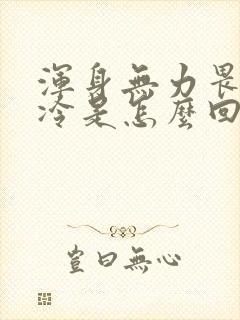 渾身無力畏
冷是怎麼回
豈曰無心